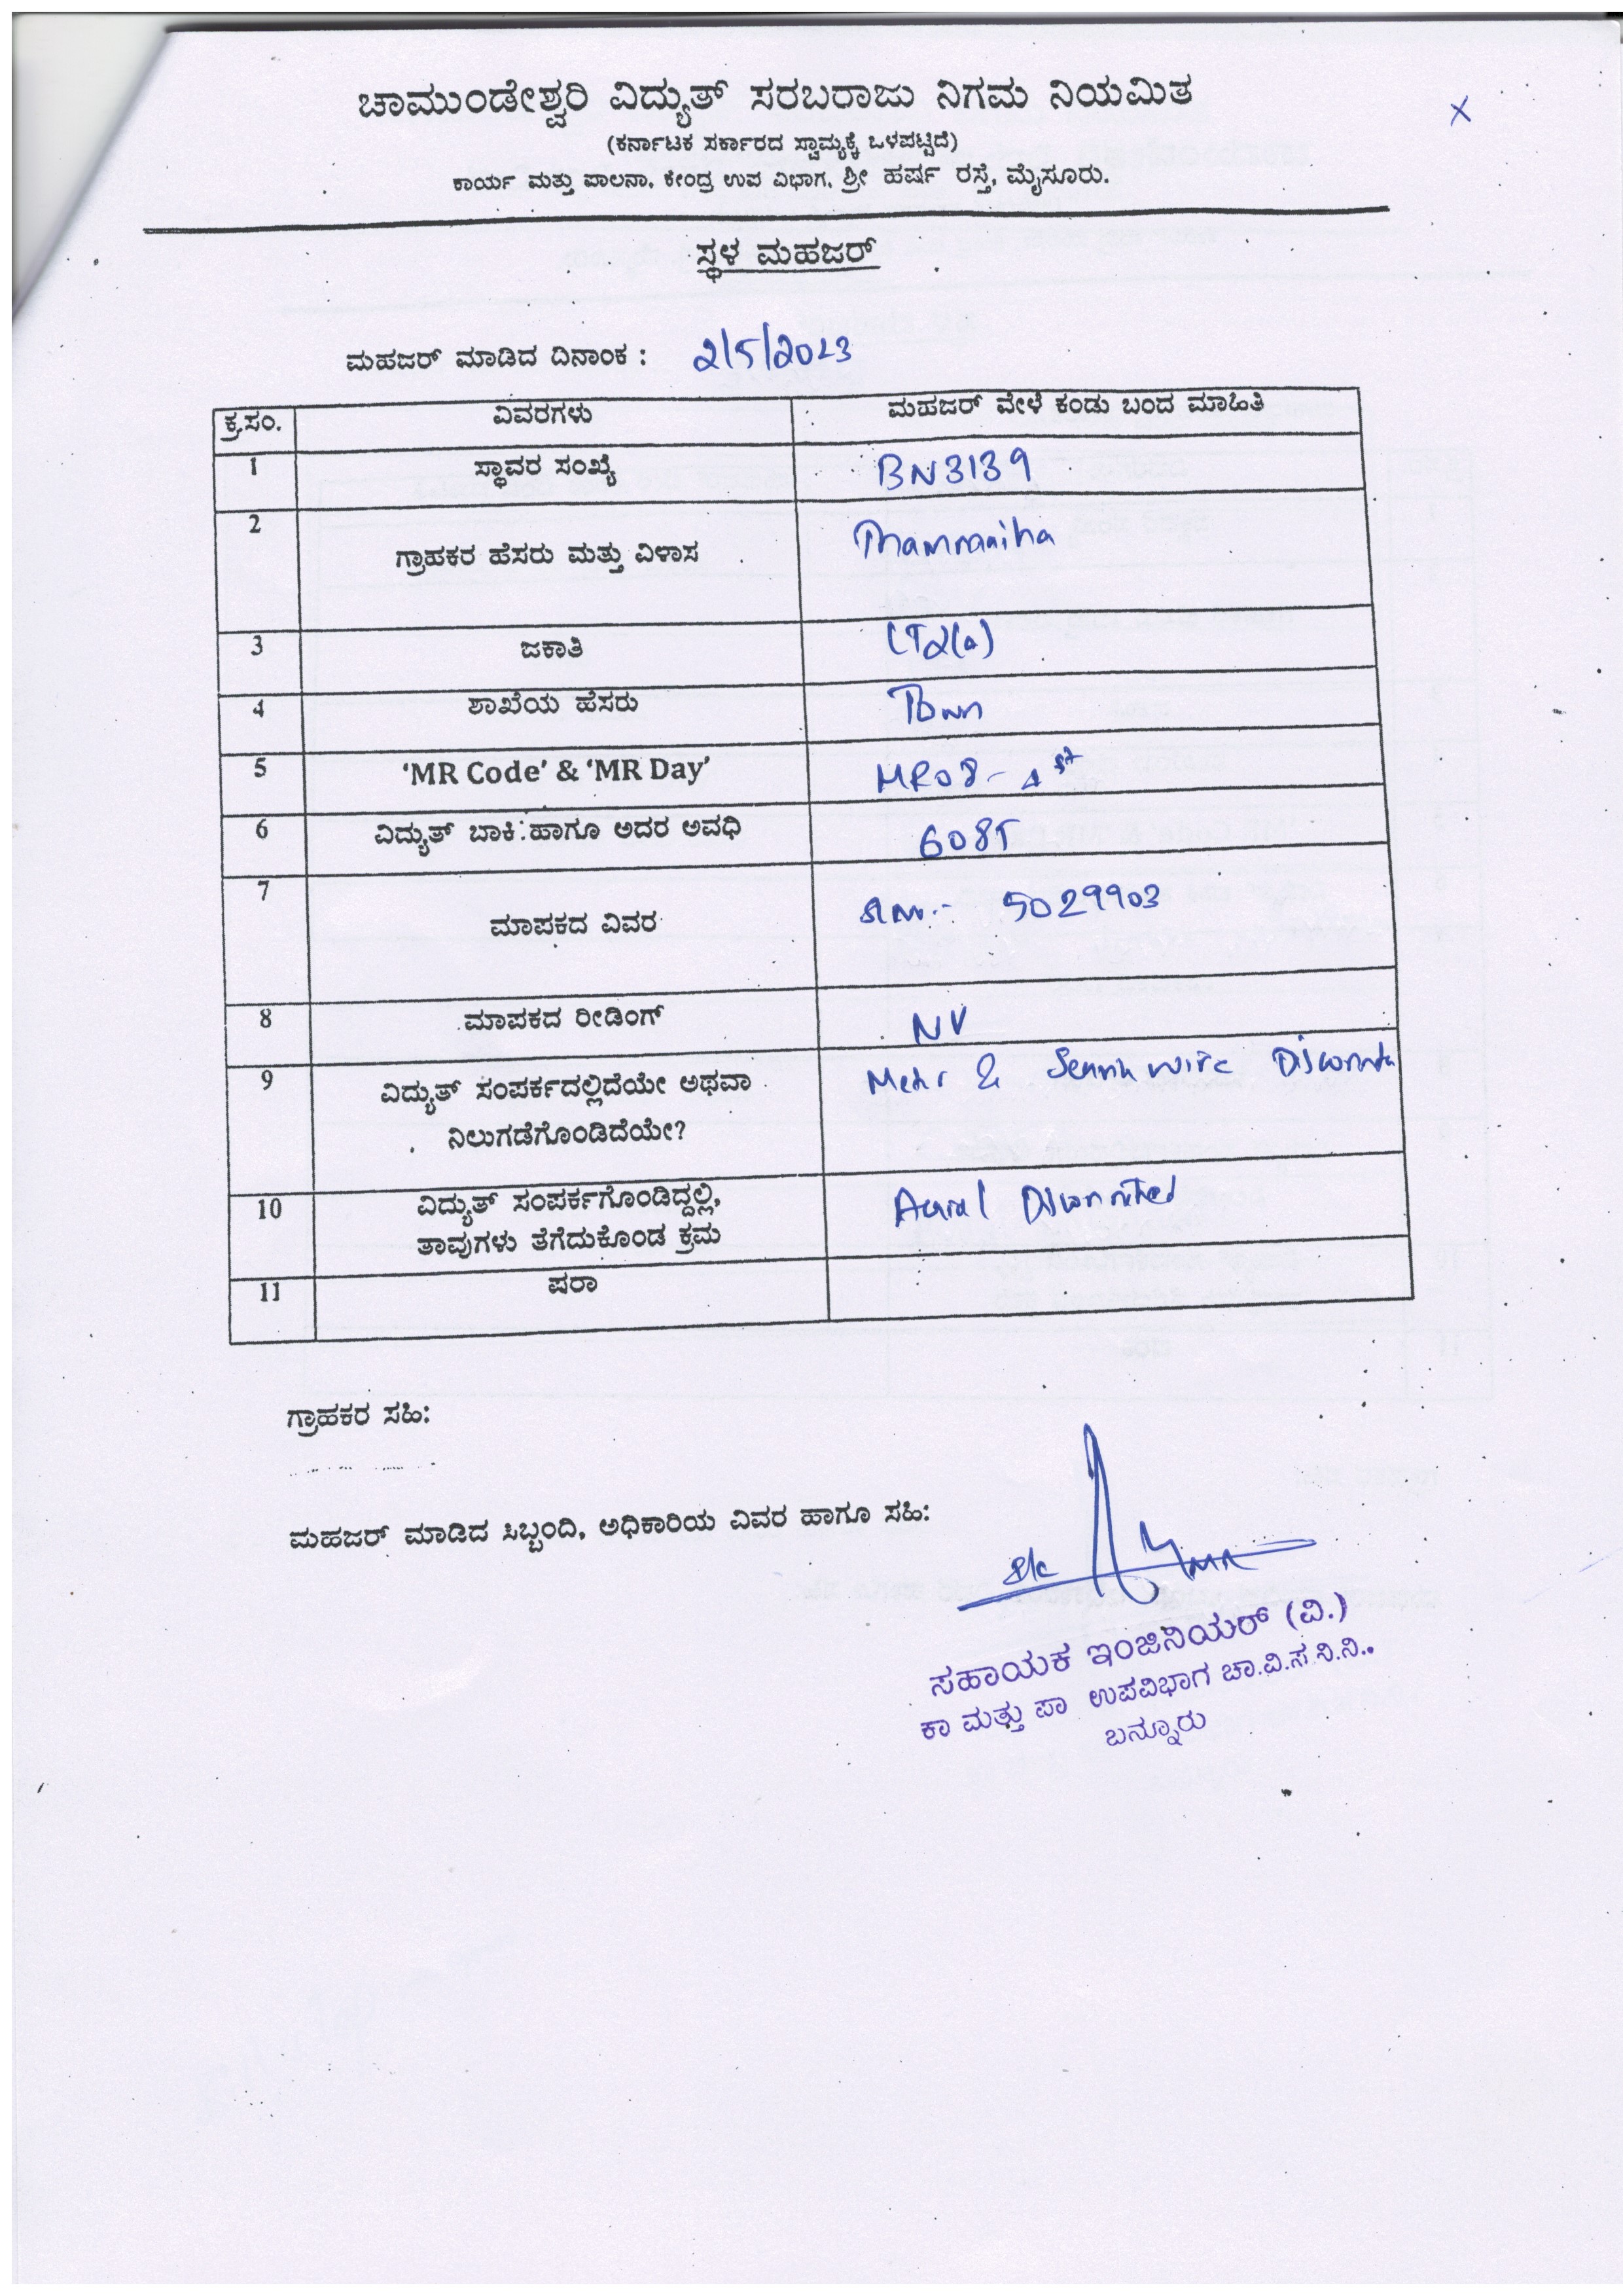 ಚಾಮುಂಡೇಶ್ವರಿ ವಿದ್ಯುತ್ ಸರಬರಾಜು ನಿಗಮ ನಿಯಮಿತ
(ಕರ್ನಾಟಕ ಸರ್ಕಾರದ ಸ್ವಾಮ್ಯಕ್ಕೆ ಒಳಪಟ್ಟಿದೆ)
ಕಾರ್ಯ ಮತ್ತು ಪಾಲನಾ, ಕೇಂದ್ರ ಉಪ ವಿಭಾಗ, ಶ್ರೀ ಹರ್ಷ ರಸ್ತೆ, ಮೈಸೂರು.
ಸ್ಥಳ ಮಹಜರ್
ಮಹಜರ್ ಮಾಡಿದ ದಿನಾಂಕ : 2/5/2023
ಕ್ರ.ಸಂ. ವಿವರಗಳು ಮಹಜರ್ ವೇಳೆ ಕಂಡು ಬಂದ ಮಾಹಿತಿ
1 ಸ್ಥಾವರ ಸಂಖ್ಯೆ BN3139
2 ಗ್ರಾಹಕರ ಹೆಸರು ಮತ್ತು ವಿಳಾಸ
3 ಜಕಾತಿ LT2(a)
4 ಶಾಖೆಯ ಹೆಸರು Town
5 'MR Code' & 'MR Day' MR08- 1st
6 ವಿದ್ಯುತ್ ಬಾಕಿ ಹಾಗೂ ಅದರ ಅವಧಿ
7 ಮಾಪಕದ ವಿವರ 5029903
8 ಮಾಪಕದ ರೀಡಿಂಗ್ NV
9 ವಿದ್ಯುತ್ ಸಂಪರ್ಕದಲ್ಲಿದೆಯೇ ಅಥವಾ & wire
ನಿಲುಗಡೆಗೊಂಡಿದೆಯೇ?
10 ವಿದ್ಯುತ್ ಸಂಪರ್ಕಗೊಂಡಿದ್ದಲ್ಲಿ,
ತಾವುಗಳು ತೆಗೆದುಕೊಂಡ ಕ್ರಮ
11 ಷರಾ
ಗ್ರಾಹಕರ ಸಹಿ:
ಮಹಜರ್ ಮಾಡಿದ ಸಿಬ್ಬಂದಿ, ಅಧಿಕಾರಿಯ ವಿವರ ಹಾಗೂ ಸಹಿ:
ಸಹಾಯಕ ಇಂಜಿನಿಯರ್ (ವಿ.)
ಕಾ ಮತ್ತು ಪಾ ಉಪವಿಭಾಗ ಚಾ.ವಿ.ಸ.ನಿ.ನಿ..
ಬನ್ನೂರು